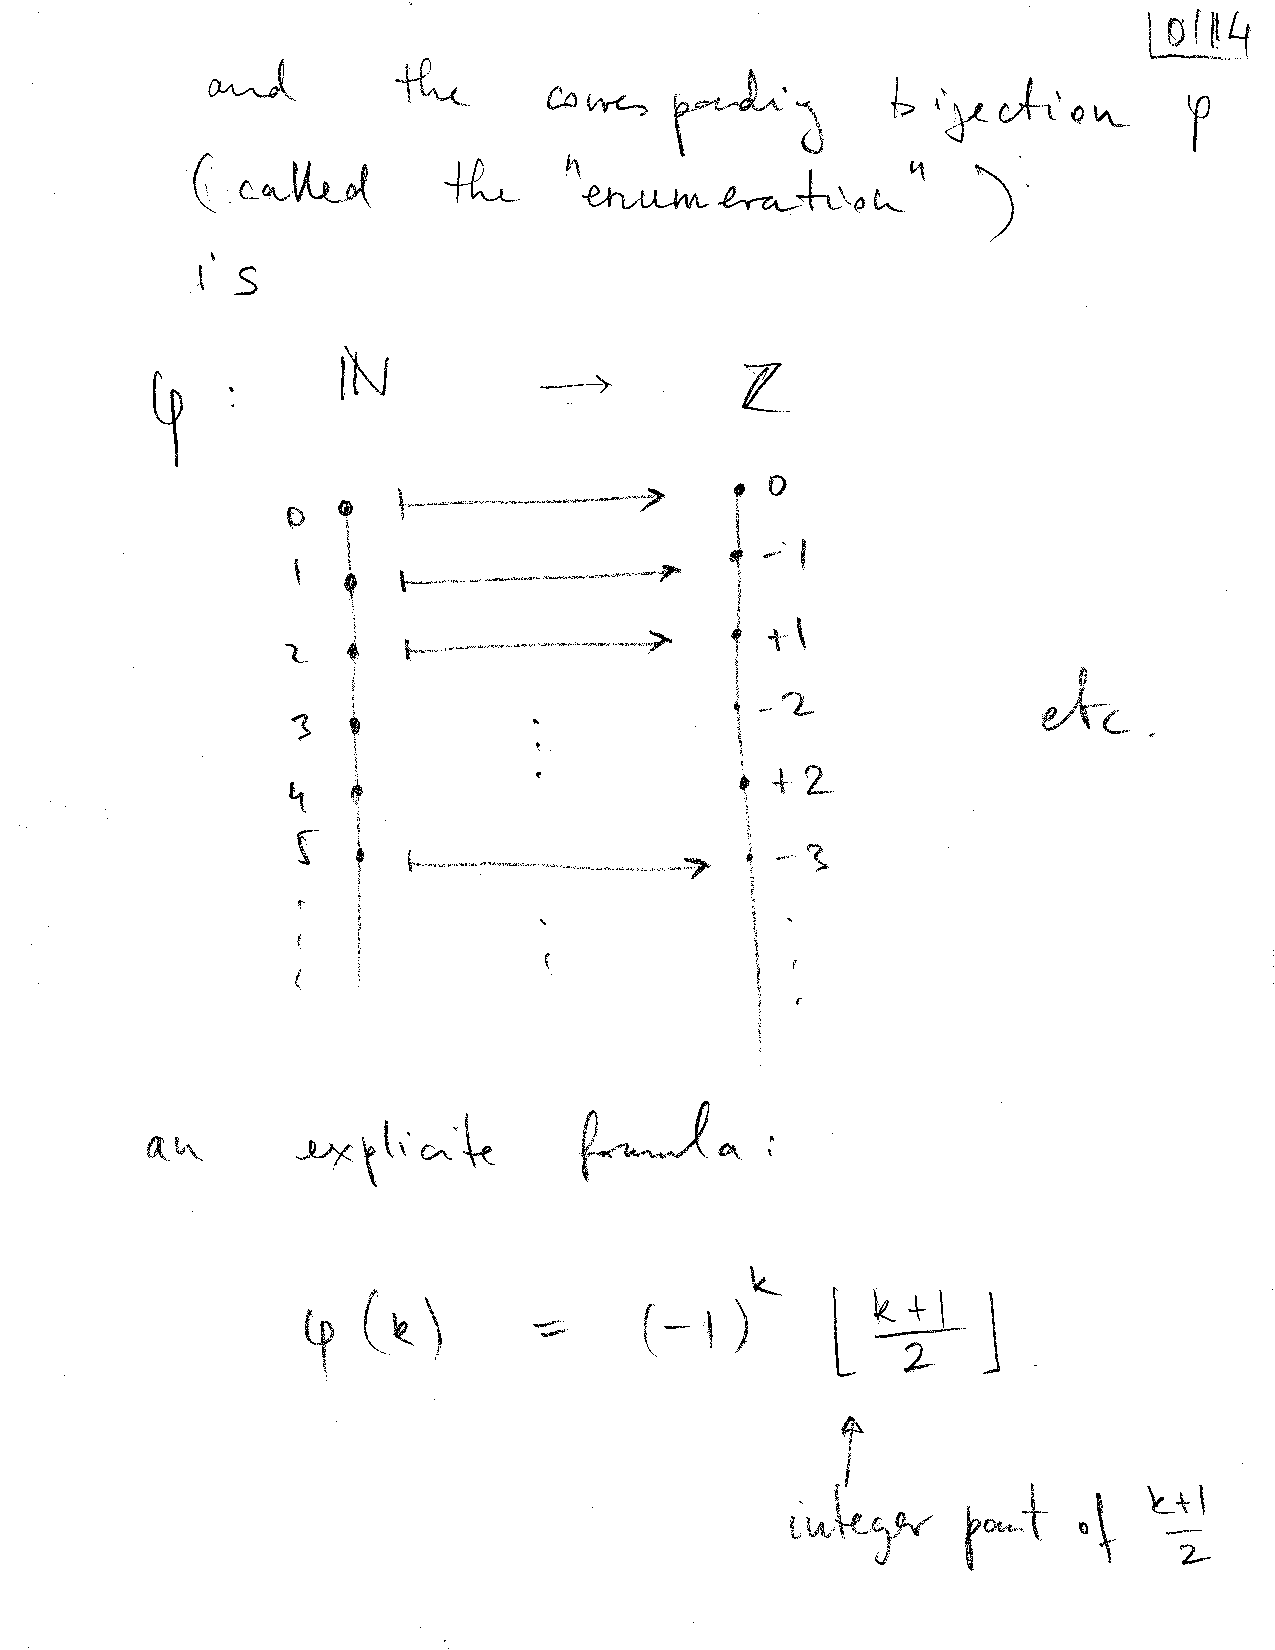 0/14
and the corresponding bijection φ
(called the "enumeration")
is
φ : ℕ → ℤ
0 ↦ 0
1 ↦ -1
2 ↦ +1
3 ⋮ -2 etc.
4 +2
5 ↦ -3
⋮ ⋮ ⋮
an explicite formula:
φ(k) = (-1)^k ⌊(k+1)/2⌋.
↑
integer part of (k+1)/2